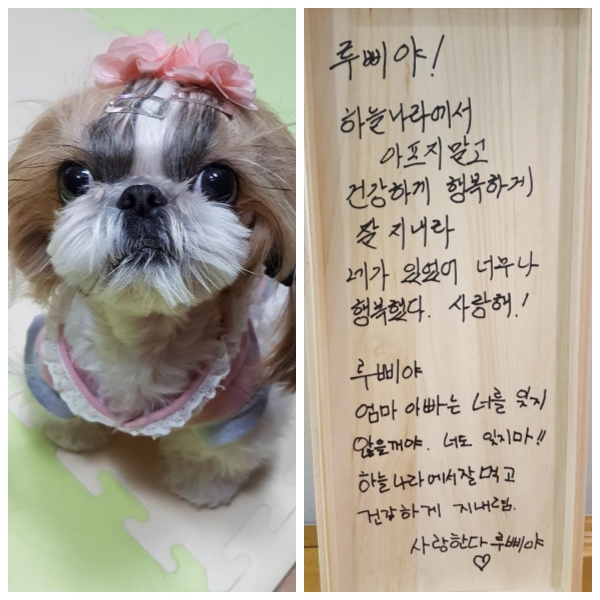 루삐야!
하늘나라에서
아프지말고
건강하게 행복하게
잘 지내라
네가 있었어 너무나
행복했다. 사랑해!
루삐야
엄마 아빠는 너를 잊지
않을꺼야. 너도 잊지마!!
하늘나라에서잘먹고
건강하게 지내렴.
사랑한다 루삐야
♡